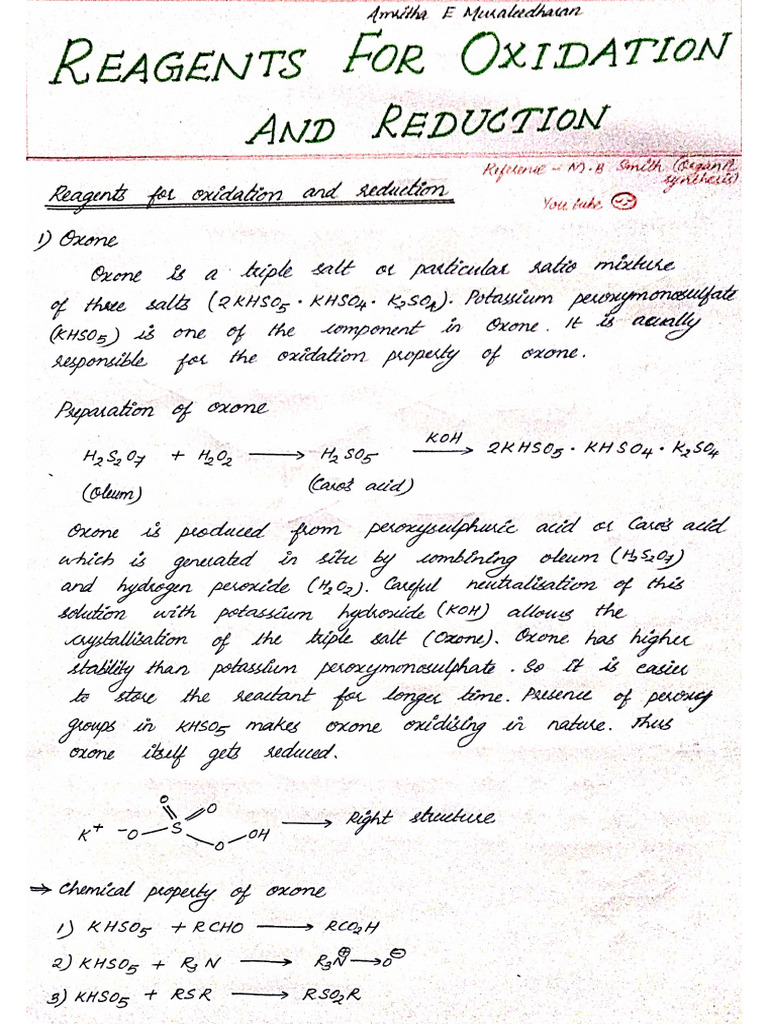 Amritha E Muraleedharan
REAGENTS FOR OXIDATION
AND REDUCTION
Reference - M.B Smith (Organic
synthesis)
Youtube
Reagents for oxidation and reduction
1) Oxone
Oxone is a triple salt or particular ratio mixture
of three salts (2KHSO5 · KHSO4 · K2SO4). Potassium peroxymonosulfate
(KHSO5) is one of the component in Oxone. It is
responsible for the oxidation property of oxone.
Preparation of oxone
H2S2O7 + H2O2 ⟶ H2SO5 KOH ⟶ 2KHSO5 · KHSO4 · K2SO4
(Oleum) (Caro's acid)
Oxone is produced from peroxysulphuric acid or Caro's acid
which is generated in situ by combining oleum (H2S2O7)
and hydrogen peroxide (H2O2). Careful neutralisation of this
solution with potassium hydroxide (KOH) allows the
crystallisation of the triple salt (Oxone). Oxone has higher
stability than potassium peroxymonosulphate. So it is easier
to store the reactant for longer time. Presence of peroxy
groups in KHSO5 makes oxone oxidising in nature. Thus
oxone itself gets reduced.
O O
K+ -O S O OH ⟶ Right structure
⇒ Chemical property of oxone
1) KHSO5 + RCHO ⟶ RCO2H
2) KHSO5 + R3N ⟶ R3N⊕→O⊖
3) KHSO5 + RSR ⟶ RSO2R